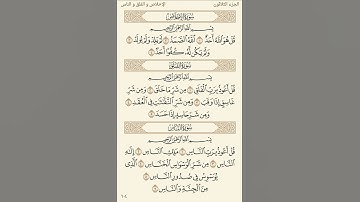 الجزء الثلاثون
الإخلاص و الفلق و الناس
سورة الإخلاص
بسم الله الرحمن الرحيم
قُلْ هُوَ اللَّهُ أَحَدٌ ١ اللَّهُ الصَّمَدُ ٢ لَمْ يَلِدْ وَلَمْ يُولَدْ ٣
وَلَمْ يَكُن لَّهُ كُفُوًا أَحَدٌ ٤
سورة الفلق
بسم الله الرحمن الرحيم
قُلْ أَعُوذُ بِرَبِّ الْفَلَقِ ١ مِن شَرِّ مَا خَلَقَ ٢ وَمِن شَرِّ
غَاسِقٍ إِذَا وَقَبَ ٣ وَمِن شَرِّ النَّفَّاثَاتِ فِي الْعُقَدِ ٤
وَمِن شَرِّ حَاسِدٍ إِذَا حَسَدَ ٥
سورة الناس
بسم الله الرحمن الرحيم
قُلْ أَعُوذُ بِرَبِّ النَّاسِ ١ مَلِكِ النَّاسِ ٢ إِلَٰهِ
النَّاسِ ٣ مِن شَرِّ الْوَسْوَاسِ الْخَنَّاسِ ٤ الَّذِي
يُوَسْوِسُ فِي صُدُورِ النَّاسِ ٥
مِنَ الْجِنَّةِ وَالنَّاسِ ٦